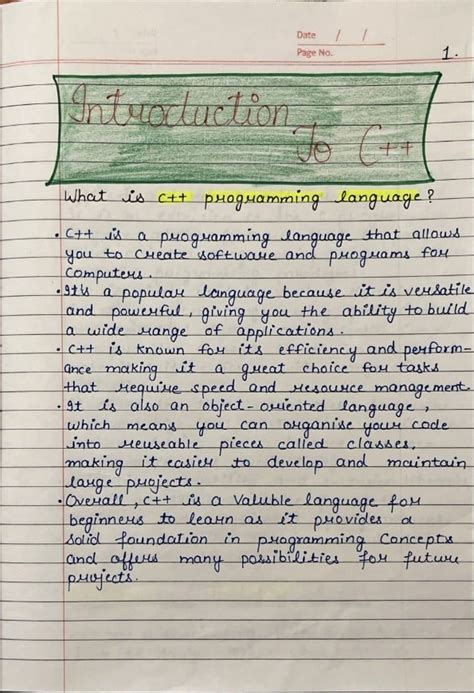 Date / /
Page No.
1.
Introduction
To C++
What is C++ programming language?
• C++ is a programming language that allows
you to create software and programs for
Computers.
• It's a popular language because it is versatile
and powerful, giving you the ability to build
a wide range of applications.
• C++ is known for its efficiency and perform-
ance making it a great choice for tasks
that require speed and resource management.
• It is also an object-oriented language,
which means you can organise your code
into reuseable pieces called classes,
making it easier to develop and maintain
large projects.
• Overall, C++ is a Valuble language for
beginners to learn as it provides a
solid foundation in programming Concepts
and offers many possibilities for future
projects.